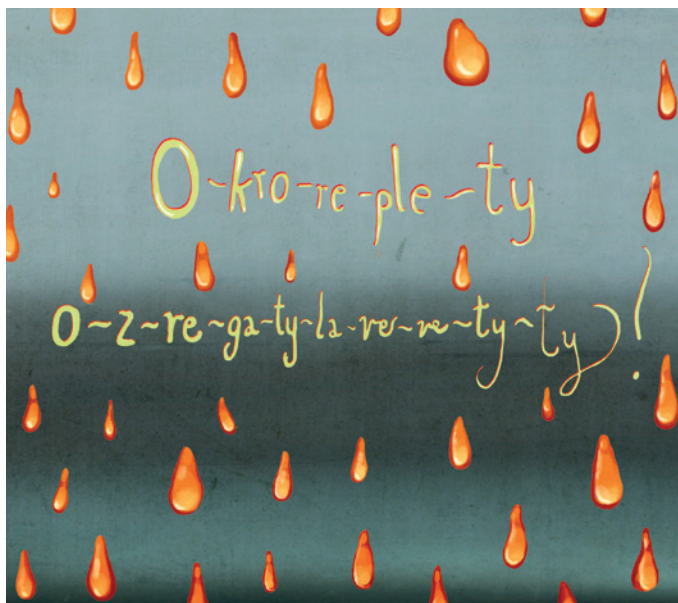 O-kro-re-ple-ty
o-z-re-ga-ty-la-ver-ve-ty-ty!